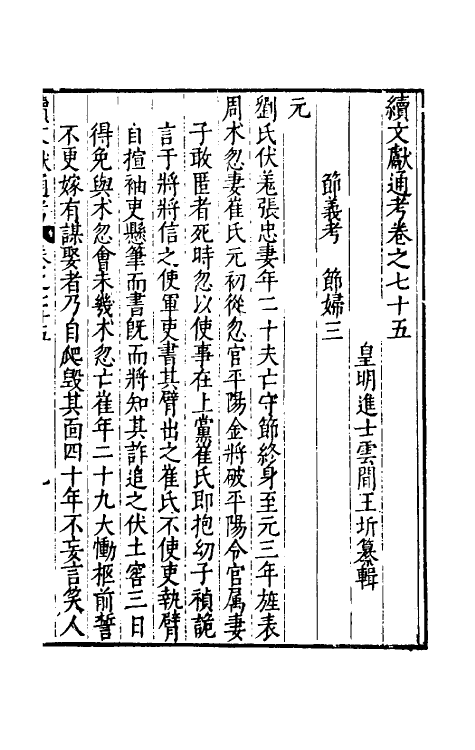 續文獻通考卷之七十五
皇明進士雲間王圻纂輯
節義考　節婦三
元
劉氏伏羗張忠妻年二十夫亡守節終身至元三年旌表
周术忽妻崔氏元初從忽官平陽金將破平陽令官属妻
子敢匿者死時忽以使事在上黨崔氏即抱幼子禎詭
言于將將信之使軍吏書其臂出之崔氏不使吏執臂
自揎袖吏懸筆而書旣而將知其詐追之伏土窖三日
得免與术忽會未幾术忽亡崔年二十九大慟柩前誓
不更嫁有謀娶者乃自爬毁其面四十年不妄言笑人
續文獻通考　卷之七十五